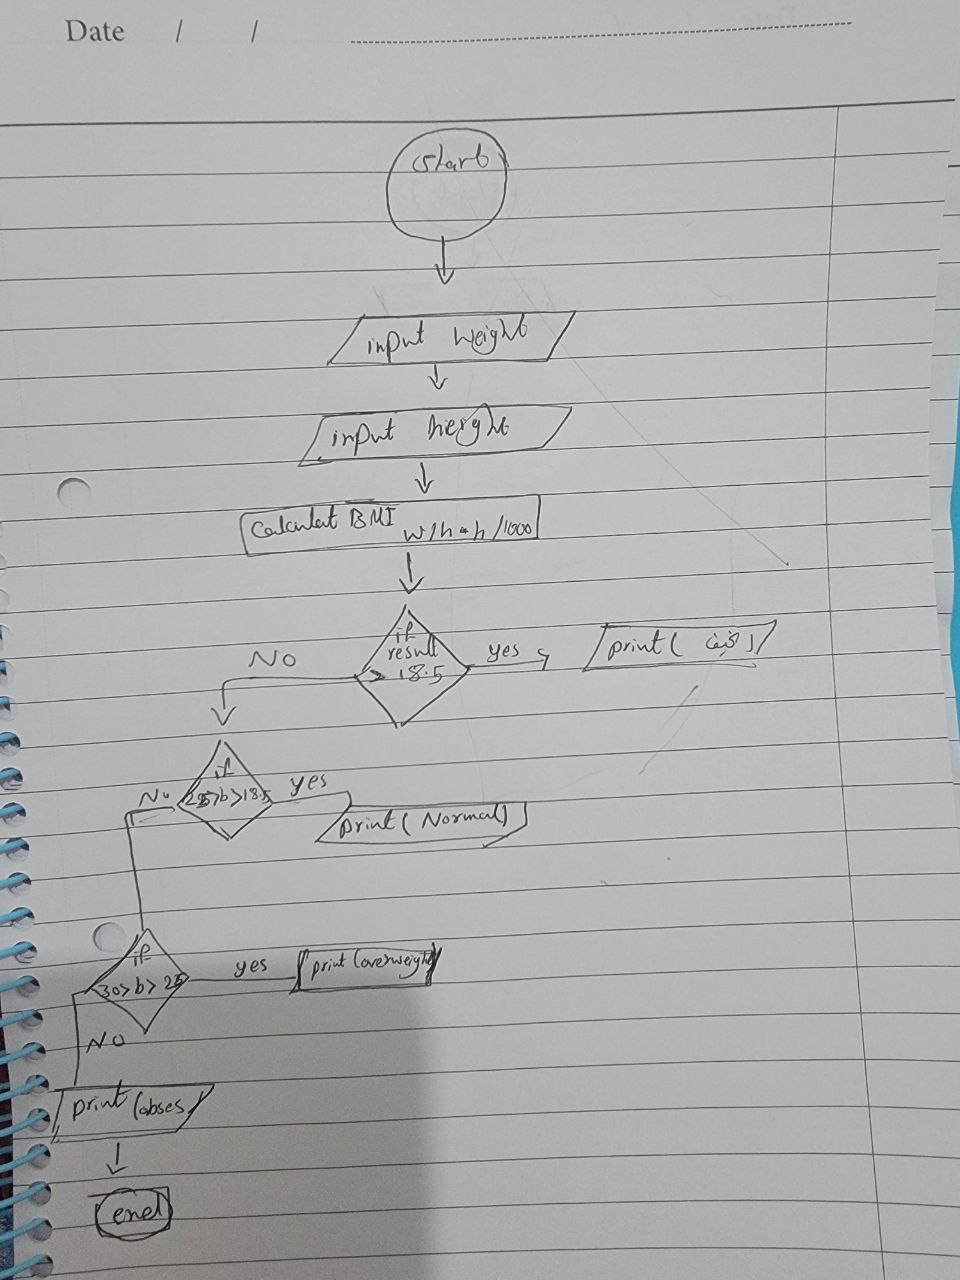 Date / /
start
input weight
input height
Calculat BMI
w/h*h/1000
if
result
> 18.5
yes
print( )
NO
if
25>b>18.5
yes
No
print( Normal)
if
30>b>25
yes
print (overweight)
NO
print (obses)
end